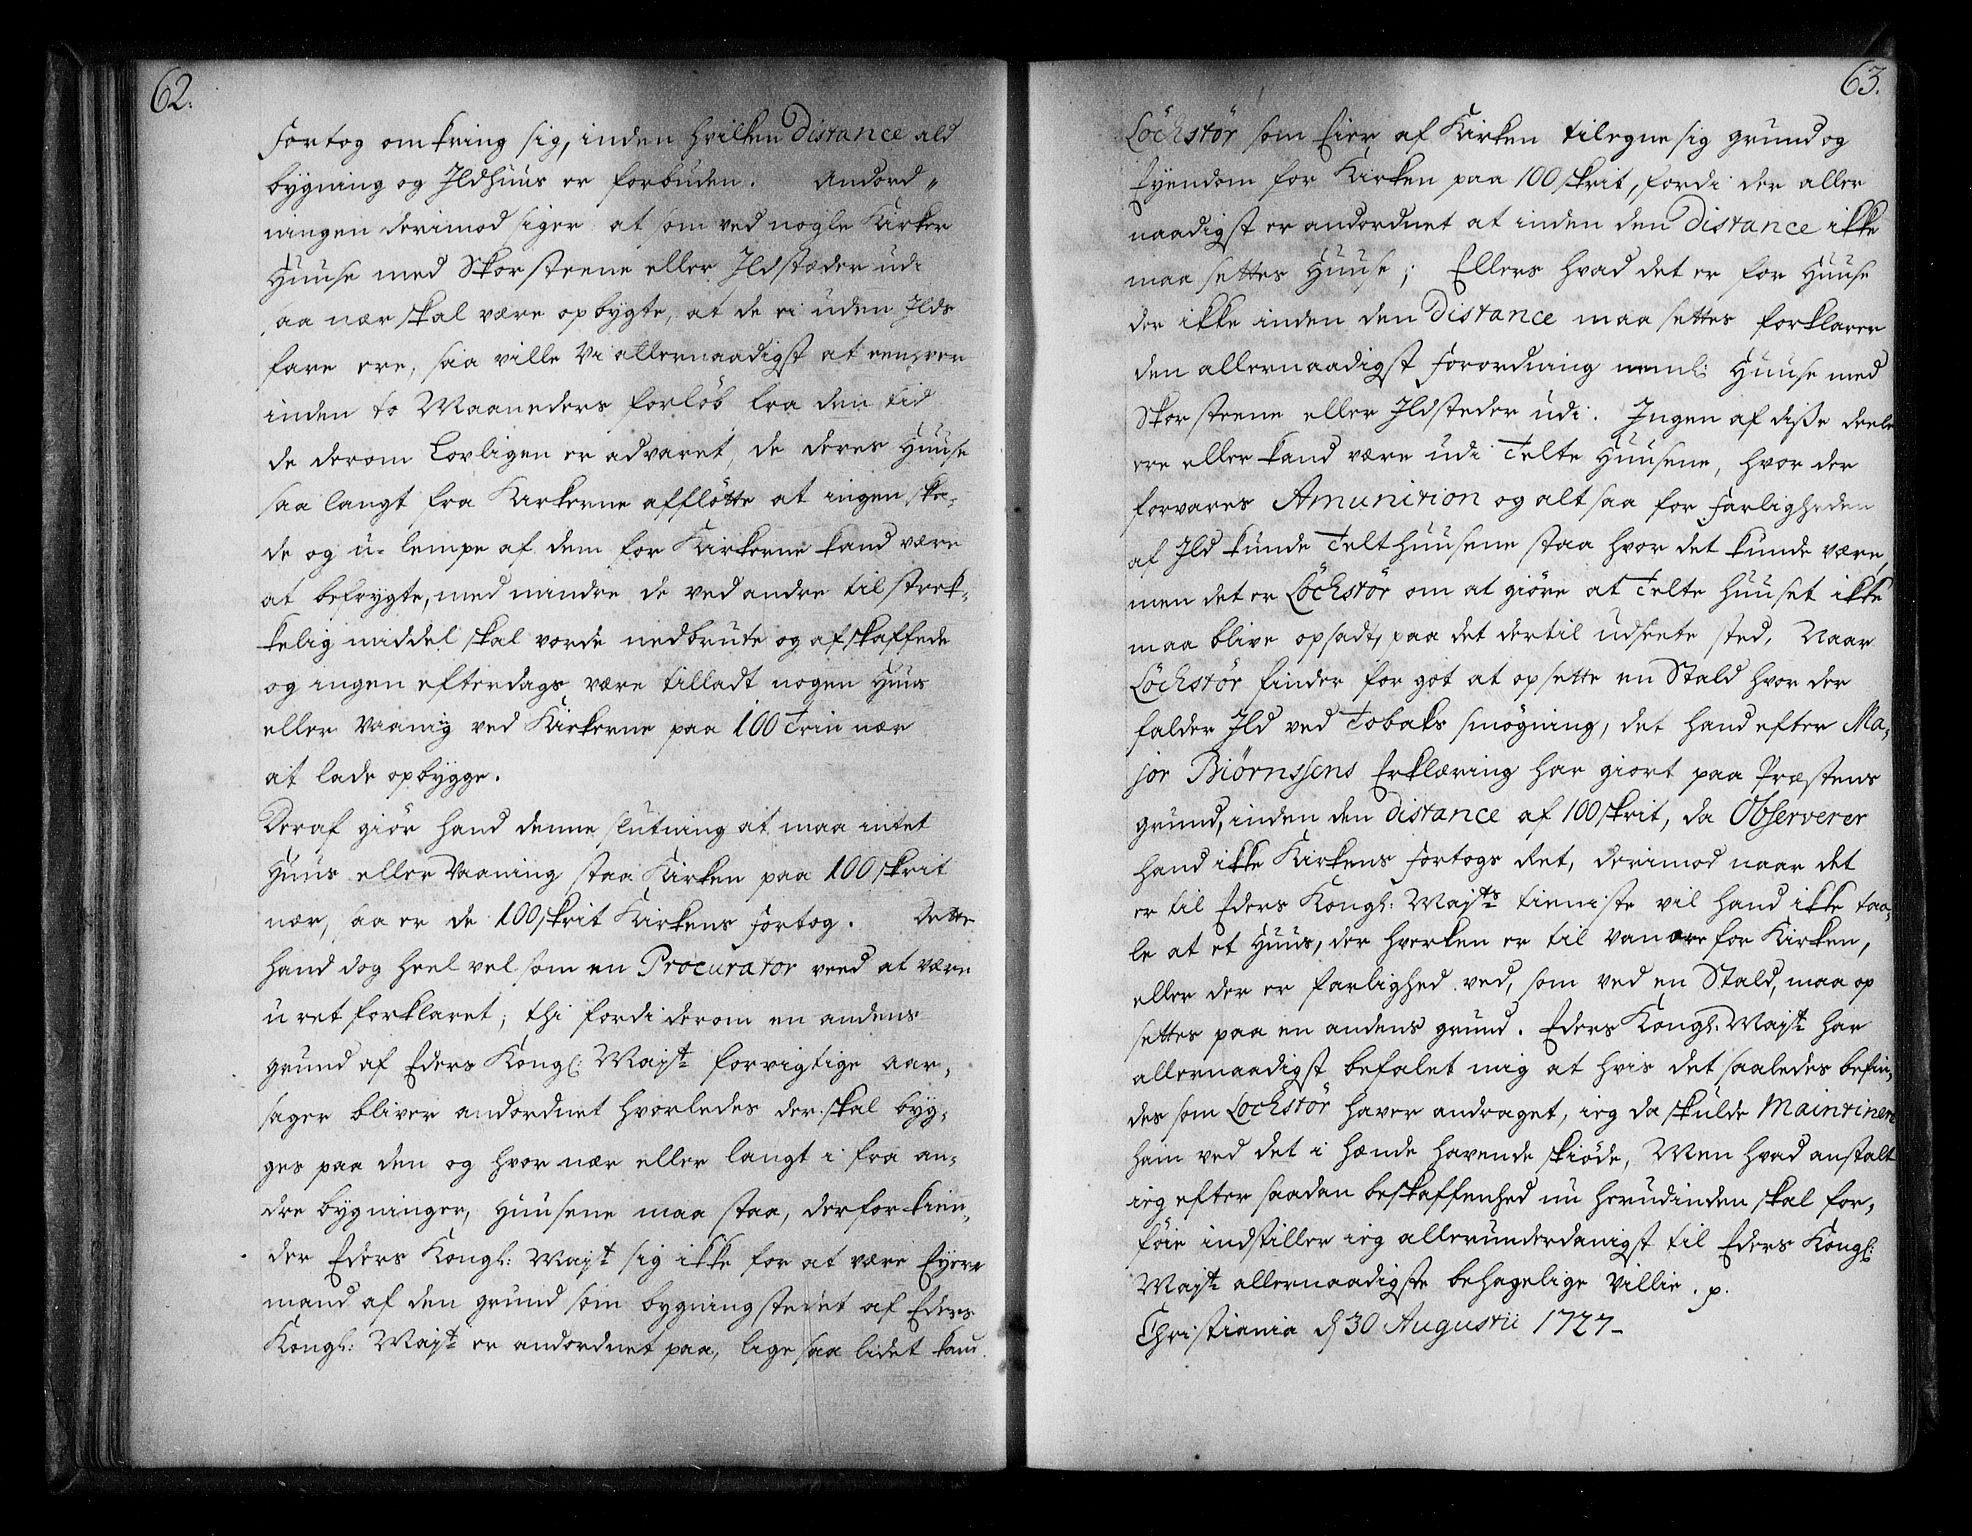 62.
Fortog omkring sig, inden hvilken Distance ald
bygning og Ildhuus er forbuden. Andord„
ningen derimod siger at som ved nogle Kirker
Huuse med Skorsteene eller Ildstæder udi
saa nær skal være opbygte, at de ei uden Ilds
fare ere, saa ville Vi allernaadigst at eenhver
inden to Maaneders forløb fra den tid
de derom Lovligen er advaret, de deres Huuse
saa langt fra Kirkerne affløtte at ingen ska-
de og u-lempe af dem for Kirkerne kand være
at befrygte, med mindre de ved andre tilstrek-
kelig middel skal vorde nedbrudte og afskaffede
og ingen efterdags være tilladt nogen Huus
eller Vaanig ved Kirkerne paa 100 Trin nær
at lade opbygge.
Deraf giør hand denne slutning at maa intet
Huus eller Vaaning staa Kirken paa 100 skrit
nær, saa er de 100 skrit Kirkens Fortog. Dette
hand dog heel vel som en Procurator veed at være
u ret forklaret; thi fordi derom en andens
grund af Eders Kongl: Majst: forvigtige aar-
sager bliver andordnet hvorledes der skal byg-
ges paa den og hvor nær eller langt i fra an-
dre bygninger, Huusene maa staa, derfor kien-
der Eders Kongl: Majst sig ikke for at være Eyere
mand af den grund som bygningstedet af Eders
Kongl: Majst: er andordnet paa, lige saa lidet kand
63.
Löchstör som Eier af Kirken tilegne sig grund og
Eyendom for Kirken paa 100 skrit, fordi der aller
naadigst er andordnet at inden den Distance ikke
maa settes Huuse; Ellers hvad det er for Huuse
der ikke inden den Distance maa settes forklarer
den allernaadigst Forordning neml: Huuse med
Skorsteene eller Ildsteder udi. Ingen af disse deele
ere eller kand være udi Telte Huusene, hvor der
forvares Amunition og alt saa for Farligheden
af Ild kunde Telthuusene staa hvor det kunde være,
men det er Löchstör om at giøre at Telte Huuset ikke
maa blive opsadt, paa det dertil udseete sted, Naar
Löchstör finder for got at opsette en Stald hvor der
falder Ild ved Tobaks smøgning, det hand efter Ma-
jor Biørnssens Erklæring har giort paa Præstens
grund, inden den distance af 100 skrit, da Observerer
hand ikke Kirkens Fortogs Ret, derimod naar det
er til Eders Kongl: Majsts: tieniste vil hand ikke taa-
le at et Huus, der hverken er til Vanære for Kirken,
eller der er farlighed ved, som ved en Stald, maa op
settes paa en andens grund. Eders Kongl: Majst: har
allernaadigst befalet mig at hvis det saaledes befin-
des som Lochstör haver andraget, ieg da skulde Maintinere
ham ved det i hænde havende skiøde, Men hvad anstalt
ieg efter saadan beskaffenhed nu herudinden skal for-
føie indstiller ieg allerunderdanigst til Eders Kongl:
Majst: allernaadigste behagelige Villie . p.
Christiania d 30 Augustii 1727-